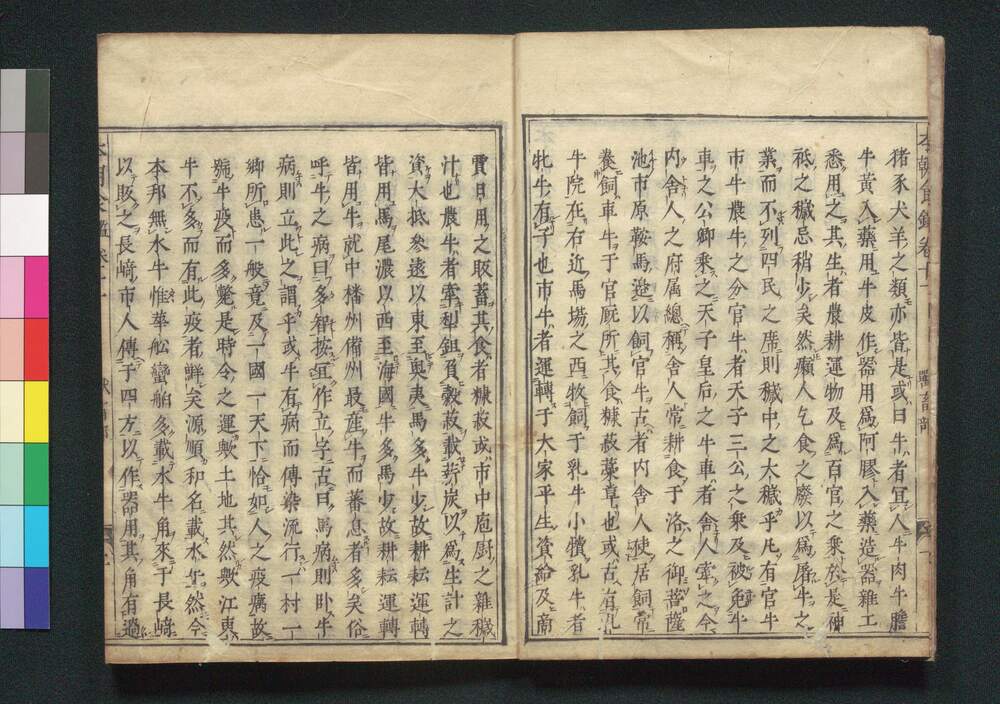 猪豕犬羊之類亦皆是或曰牛者冝人牛肉牛膽
牛黄入藥用牛皮作器用為阿膠入藥造器雜工
悉用之其生者農耕運物及為百官之乗於是神
祗之穢忌稍少矣然癩人乞食之廢以為屠牛之
業而不列四民之席則穢中之大穢乎凡有官牛
市牛農牛之分官牛者天子三公之乗及被免牛
車之公卿乗之天子皇后之牛車者舎人牽之今
内舎人之府属總稱舎人常耕食于洛之御菩薩
池市原鞍馬邉以飼官牛古者内舎人使居飼常
養飼車牛于官厩所其食糠菽藁草也或古有乳
牛院在右近馬塲之西牧飼于乳牛小犢乳牛者
牝牛有子也市牛者運轉于大家平生資給及商
賣日用之販蓄其食者糠菽或市中庖厨之雜穢
汁也農牛者牽犁鉏負穀菽載薪炭以為生計之
資大抵参遠以東至奥夷馬多牛少故耕耘運轉
皆用馬尾濃以西至海國牛多馬少故耕耘運轉
皆用牛就中播州備州最産牛而蕃息者多矣俗
呼牛之病曰多智按冝作立字古曰馬病則卧牛
病則立此之謂乎或牛有病而傳染流行一村一
郷所患一般竟及一國一天下恰如人之疫癘故
斃牛疫而多斃是時令之運歟土地其然歟江東
牛不多而有此疫者鮮矣源順和名載水牛然今
本邦無水牛惟華舩蠻舶多載水牛角來于長﨑
以販之長﨑市人傳于四方以作器用其角有過